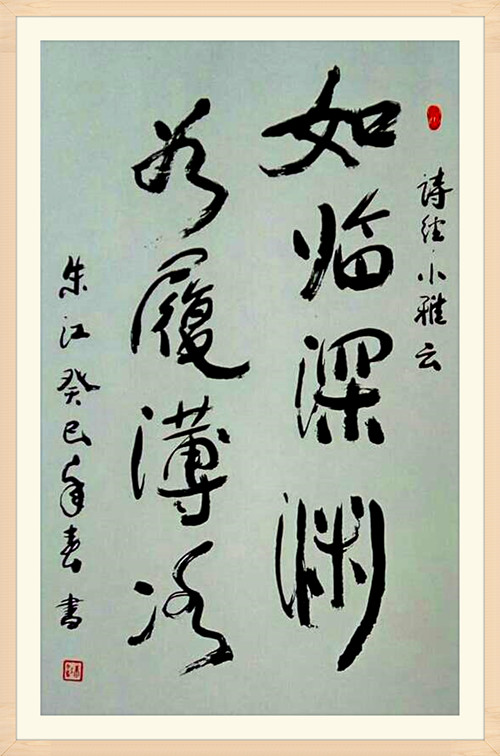 詩经·小雅云
如临深渊
如履薄冰
朱江癸巳年春書